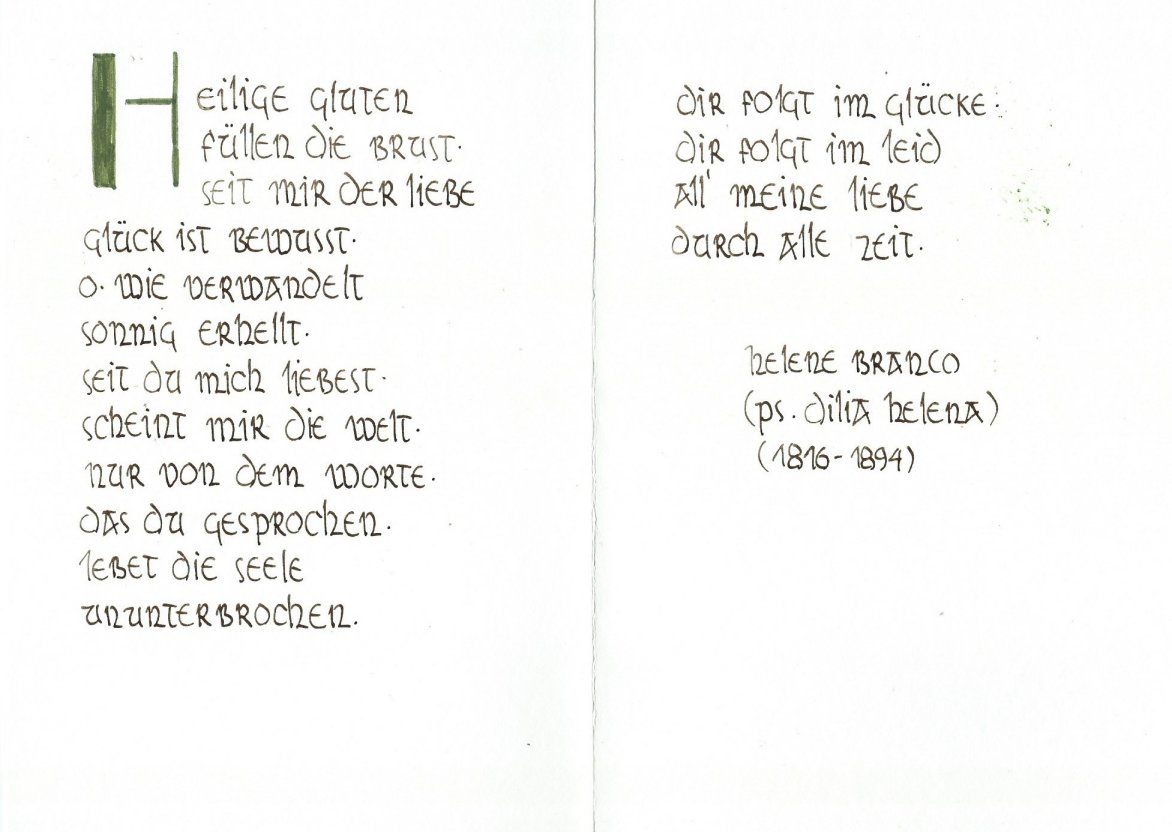 Heilige gluten
füllen die brust.
seit mir der liebe
glück ist bewusst.
o. wie verwandelt
sonnig erhellt.
seit du mich liebest.
scheint mir die welt.
nur von dem worte.
das du gesprochen.
lebet die seele
ununterbrochen.
dir folgt im glücke.
dir folgt im leid
all' meine liebe
durch alle zeit.
helene branco
(ps. dilia helena)
(1816-1894)